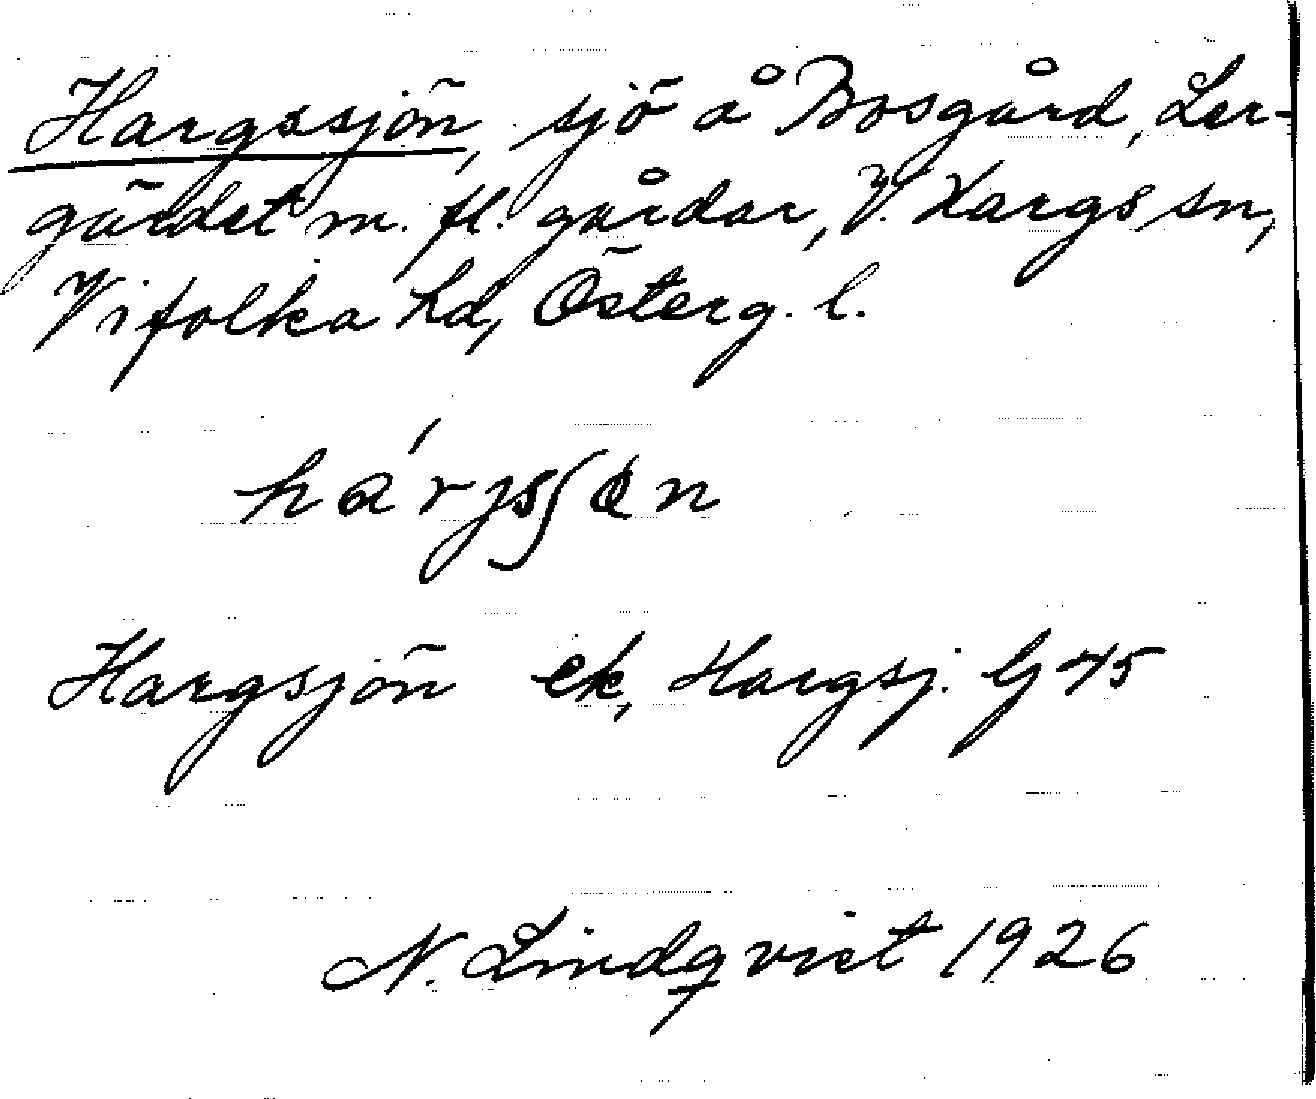 Hargssjön, sjö å Bosgård, Ler-
gärdet m. fl. gårdar, V. Hargs sn,
Vifolka hd, Österg. l.
hárjsʃøn
Hargsjön ek, Hargsj. Gj 45
N. Lindqvist 1926